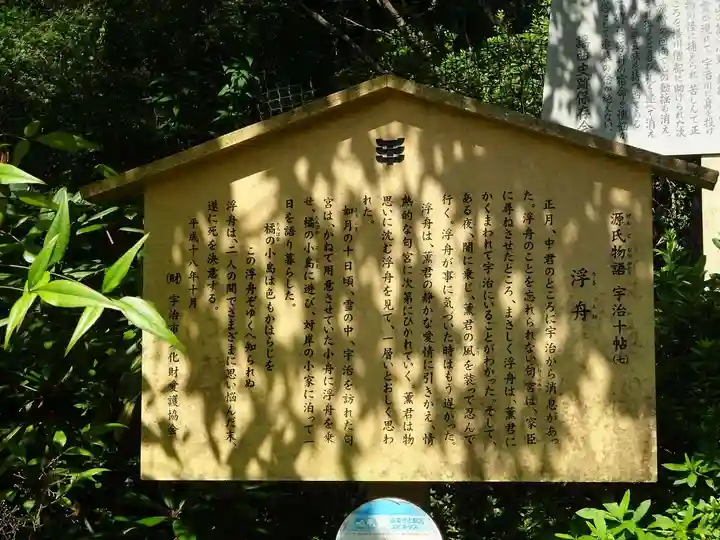 源氏物語 宇治十帖(七)
浮舟
正月、中君のところに宇治から消息があっ
た。浮舟のことを忘れられない匂宮は、家臣
に尋ねさせたところ、まさしく浮舟は、薫君に
かくまわれて宇治にいることがわかった。そして、
ある夜、闇に乗じ、薫君の風を装って忍んで
行く。浮舟が事に気づいた時はもう遅かった。
浮舟は、薫君の静かな愛情に引きかえ、情
熱的な匂宮に次第にひかれていく。薫君は物
思いに沈む浮舟を見て、一層いとおしく思わ
れた。
如月の十日頃、雪の中、宇治を訪れた匂
宮は、かねて用意させていた小舟に浮舟を乗
せ、橘の小島に遊び、対岸の小家に泊って一
日を語り暮らした。
橘の小島は色もかはらじを
この浮舟ぞゆくへ知られぬ
浮舟は、二人の間でさまざまに思い悩んだ末、
遂に死を決意する。
平成十八年十月
(財)宇治市文化財愛護協会